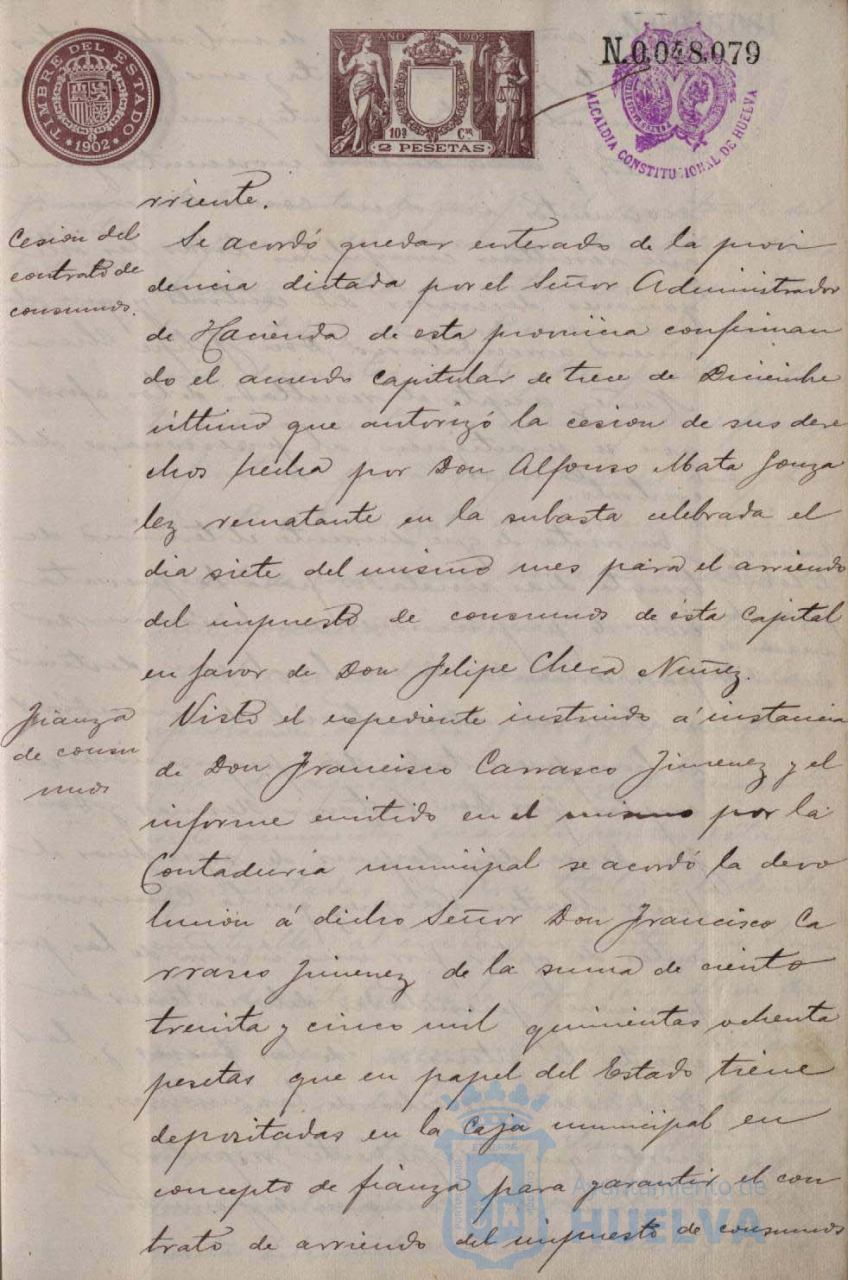 TIMBRE DEL ESTADO
1902
AÑO 1902
10ª Cse
2 PESETAS
N.0.048.079
ALCALDIA CONSTITUCIONAL DE HUELVA
rriente.
Cesion del
contrato de
consumos.
Se acordó quedar enterado de la provi
dencia dictada por el Señor Administrador
de Hacienda de esta provincia confirman
do el acuerdo capitular de trece de Diciembre
último que autorizó la cesion de sus dere
chos hecha por Don Alfonso Mata Gonza
lez rematante en la subasta celebrada el
dia siete del mismo mes para el arriendo
del impuesto de consumos de ésta Capital
en favor de Don Felipe Checa Nuñez.
Fianza
de consu
mos
Visto el expediente instruido á instancia
de Don Francisco Carrasco Jimenez y el
informe emitido en el mismo por la
Contaduria municipal se acordó la devo
lucion á dicho Señor Don Francisco Ca
rrasco Jimenez de la suma de ciento
treinta y cinco mil quinientas ochenta
pesetas que en papel del Estado tiene
depositadas en la Caja municipal en
concepto de fianza para garantir el con
trato de arriendo del impuesto de consumos
Ayuntamiento de
HUELVA